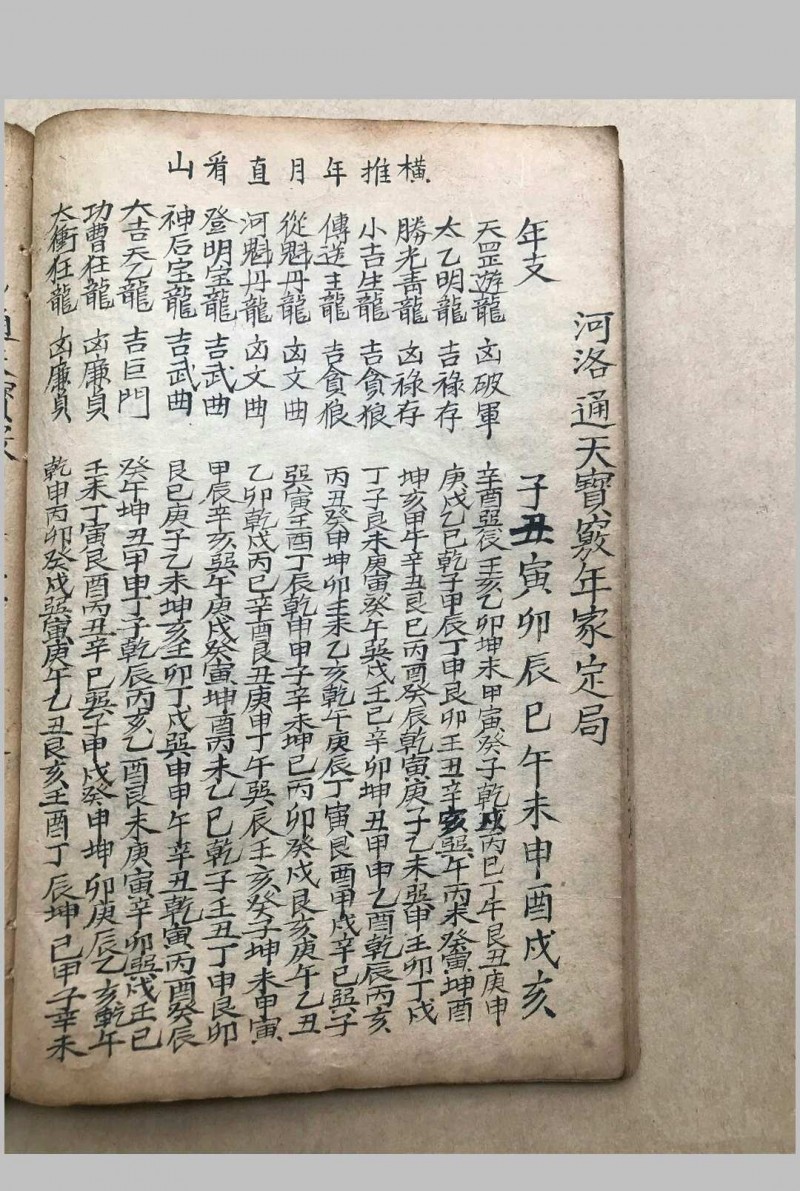 河洛通天寶竅年家定局
橫推年月直看山
年支 子丑寅卯辰巳午未申酉戌亥
天罡遊龍 凶破軍 辛酉巽辰壬亥乙卯坤未甲寅癸子乾戌丙巳丁午艮丑庚申
太乙明龍 吉祿存 庚戌乙巳乾子甲辰丁申艮卯壬丑辛亥巽午丙未癸寅坤酉
勝光青龍 凶祿存 坤亥甲午辛丑艮巳丙酉癸辰乾寅庚子乙未巽申壬卯丁戌
小吉生龍 吉貪狼 丁子艮未庚寅癸午巽戌壬巳辛卯坤丑甲申乙酉乾辰丙亥
傳送主龍 吉貪狼 丙丑癸申坤卯壬未乙亥乾午庚辰丁寅艮酉甲戌辛巳巽子
從魁丹龍 凶文曲 巽寅壬酉丁辰乾申甲子辛未坤巳丙卯癸戌艮亥庚午乙丑
河魁丹龍 凶文曲 乙卯乾戌丙巳辛酉艮丑庚申丁午巽辰壬亥癸子坤未甲寅
登明宝龍 吉武曲 甲辰辛亥巽午庚戌癸寅坤酉丙未乙巳乾子壬丑丁申艮卯
神后宝龍 吉武曲 艮巳庚子乙未坤亥壬卯丁戌巽申甲午辛丑乾寅丙酉癸辰
大吉天乙龍 吉巨門 癸午坤丑甲申丁子乾辰丙亥乙酉艮未庚寅辛卯巽戌壬巳
功曹狂龍 凶廉貞 壬未丁寅艮酉丙丑辛巳巽子甲戌癸申坤卯庚辰乙亥乾午
太衝狂龍 凶廉貞 乾申丙卯癸戌巽寅庚午乙丑艮亥壬酉丁辰坤巳甲子辛未